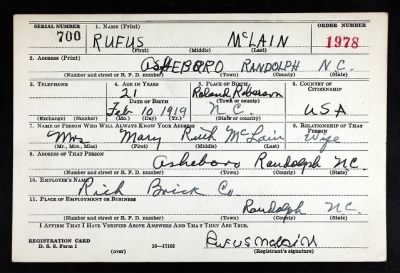 SERIAL NUMBER 1. NAME (Print) ORDER NUMBER
700 RUFUS McLAIN 1978
(First) (Middle) (Last)
2. ADDRESS (Print)
ASHEBORO RANDOLPH N.C.
(Number and street or R. F. D. number) (Town) (County) (State)
3. TELEPHONE 4. AGE IN YEARS 5. PLACE OF BIRTH 6. COUNTRY OF CITIZENSHIP
21 Roland Robeson
DATE OF BIRTH (Town or county)
Feb. 10 1919 N.C. USA
(Exchange) (Number) (Mo.) (Day) (Yr.) (State or country)
7. NAME OF PERSON WHO WILL ALWAYS KNOW YOUR ADDRESS 8. RELATIONSHIP OF THAT PERSON
Mrs Mary Ruth McLain Wife
(Mr., Mrs., Miss) (First) (Middle) (Last)
9. ADDRESS OF THAT PERSON
Asheboro Randolph NC.
(Number and street or R. F. D. number) (Town) (County) (State)
10. EMPLOYER'S NAME
Rich Brick Co
11. PLACE OF EMPLOYMENT OR BUSINESS
Randolph NC.
(Number and street or R. F. D. number) (Town) (County) (State)
I AFFIRM THAT I HAVE VERIFIED ABOVE ANSWERS AND THAT THEY ARE TRUE.
REGISTRATION CARD
D. S. S. Form 1 16-17105 RUFUS McLAIN
(over) (Registrant's signature)